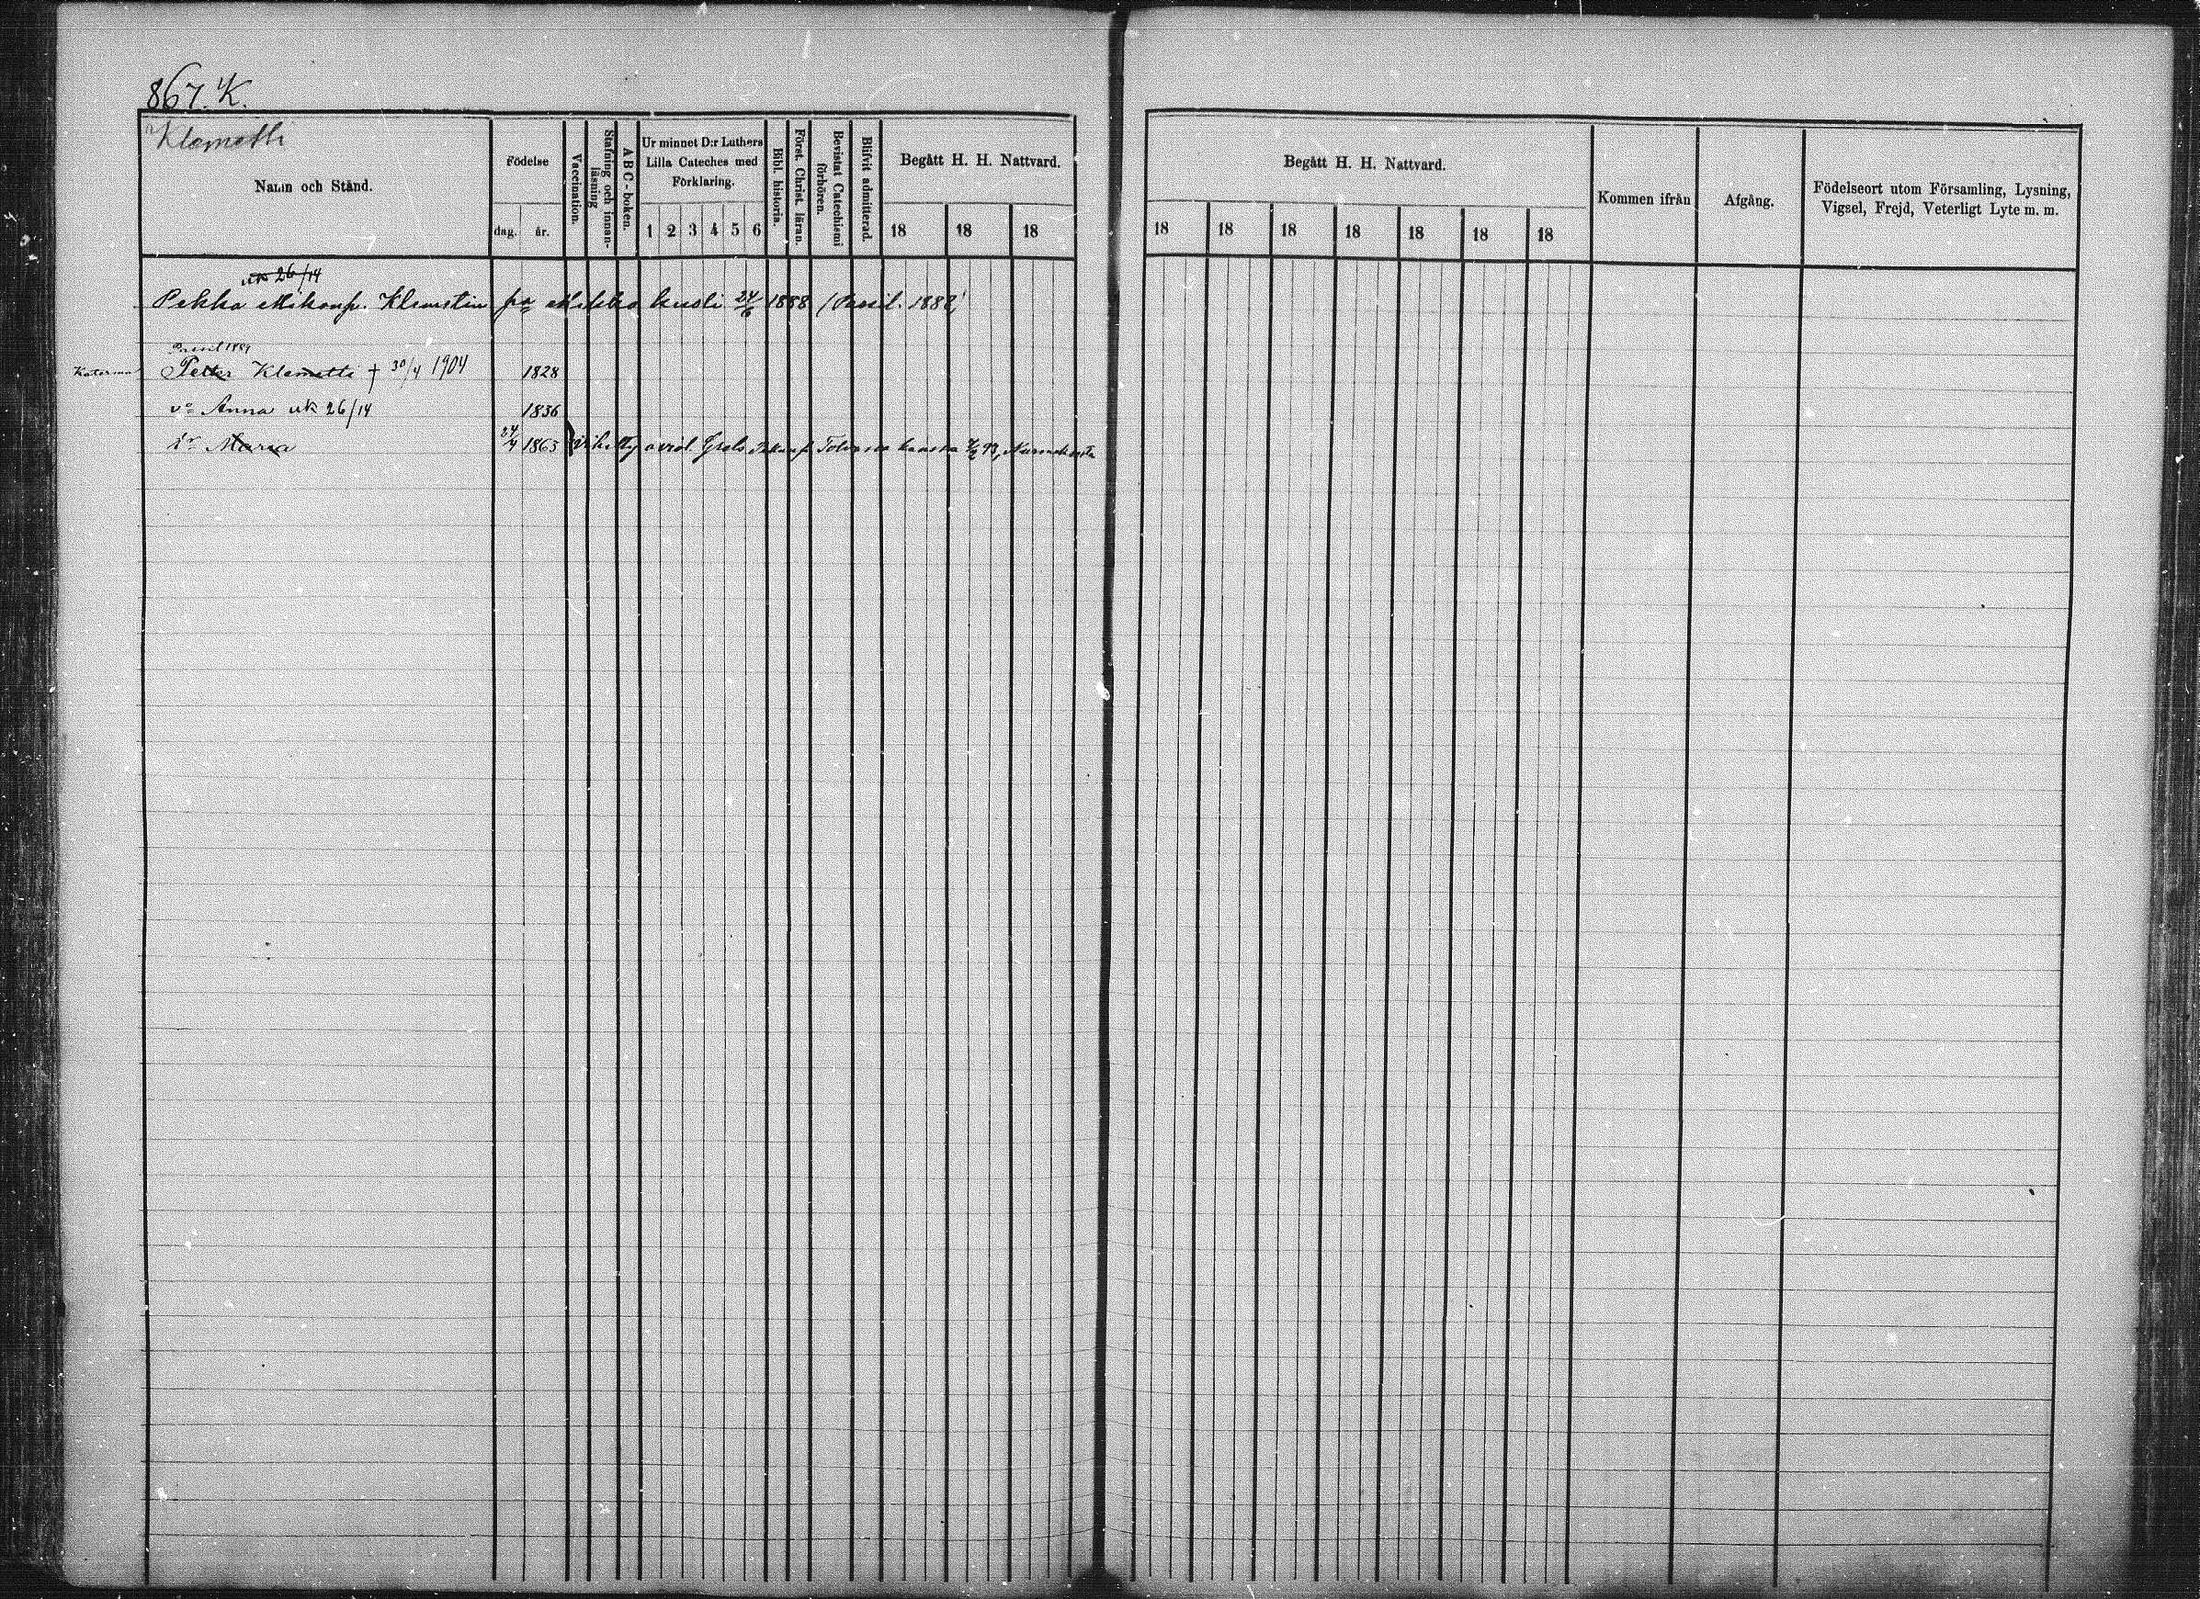 867. K.
Klemetti
Namn och Stånd.
Födelse
dag. år.
Vaccination.
Stafning och innan-läsning
ABC-boken.
Ur minnet D:r Luthers Lilla Cateches med Förklaring.
1 2 3 4 5 6
Bibl. historia.
Först. Christ. läran.
Bevistat Catechismi förhören.
Blifvit admitterad.
Begått H. H. Nattvard.
18 18 18
Begått H. H. Nattvard.
18 18 18 18 18 18 18
Kommen ifrån
Afgång.
Födelseort utom Församling, Lysning, Vigsel, Frejd, Veterligt Lyte m. m.
uk 26/14
Pekka Mikonp. Klemetin 24/6 1888 1888
1889
Petter Klemetti † 30/4 1904 1828
vo Anna uk 26/14 1836
dr Maria 24/4 1863 Vihitty